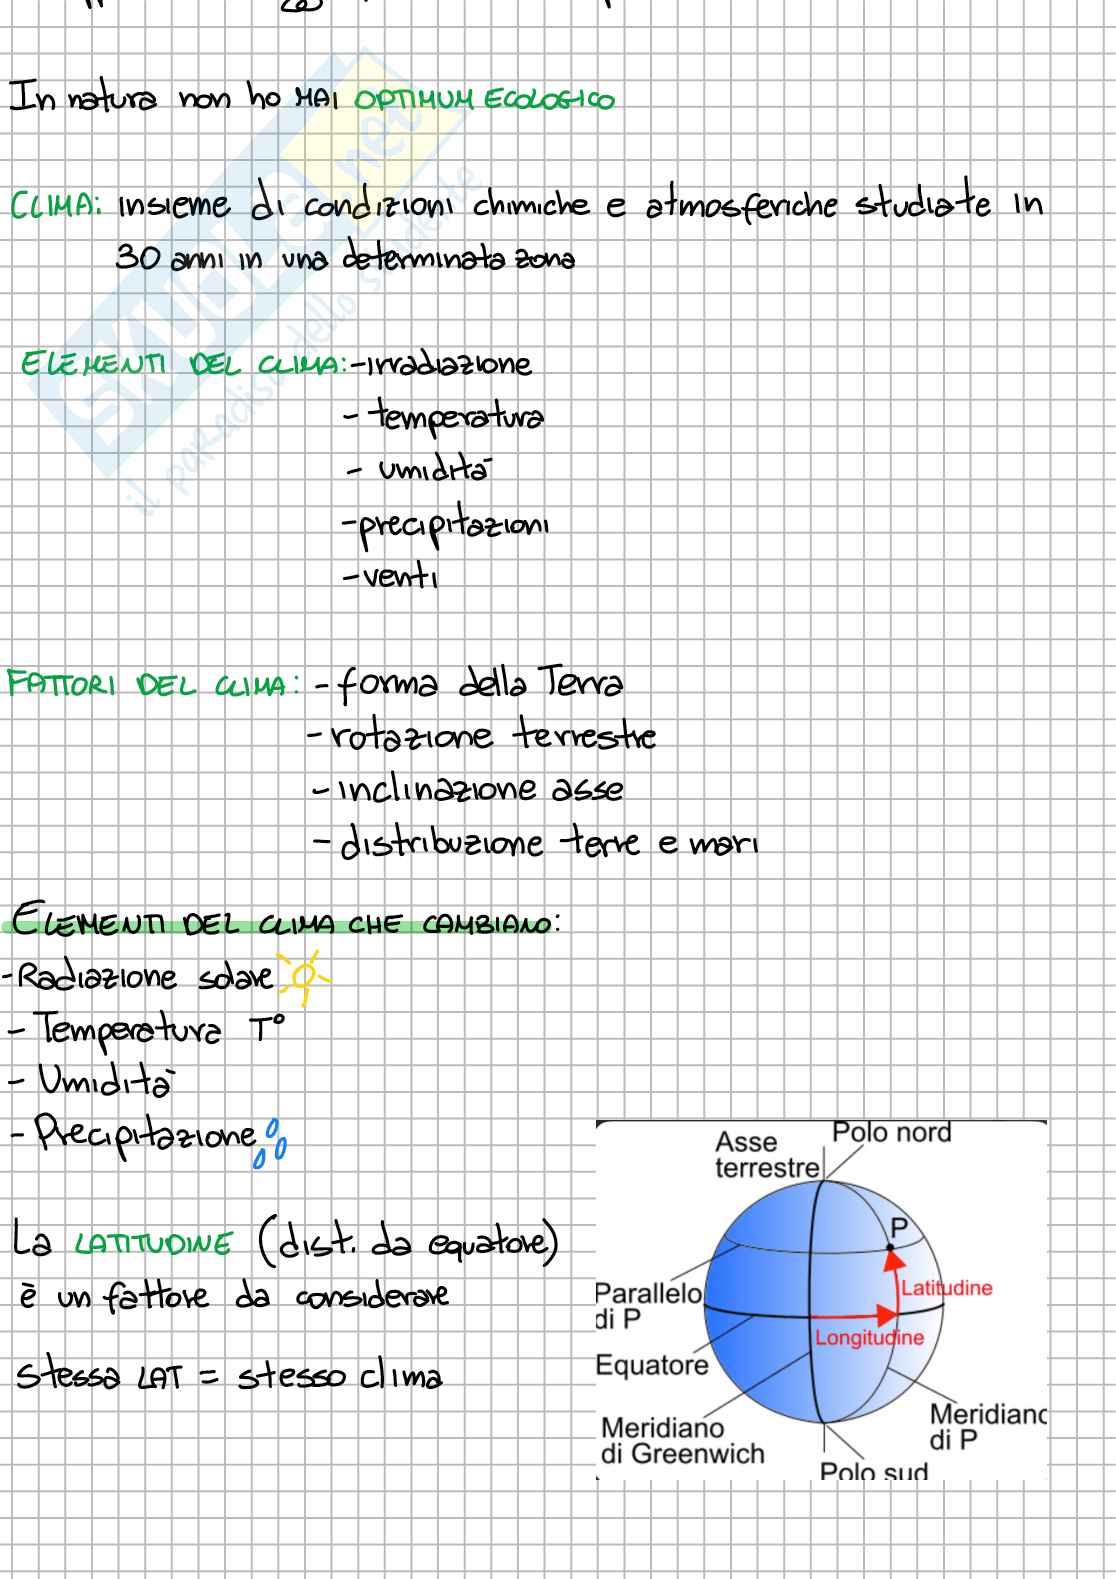 In natura non ho MAI OPTIMUM ECOLOGICO
CLIMA: insieme di condizioni chimiche e atmosferiche studiate in
30 anni in una determinata zona
ELEMENTI DEL CLIMA: - irradiazione
- temperatura
- umidità
- precipitazioni
- venti
FATTORI DEL CLIMA: - forma della Terra
- rotazione terrestre
- inclinazione asse
- distribuzione terre e mari
ELEMENTI DEL CLIMA CHE CAMBIANO:
- Radiazione solare
- Temperatura T°
- Umidità
- Precipitazione
La LATITUDINE (dist. da equatore)
è un fattore da considerare
stessa LAT = stesso clima
Asse
terrestre
Polo nord
P
Parallelo
di P
Latitudine
Longitudine
Equatore
Meridiano
di Greenwich
Meridiano
di P
Polo sud
SKUOLA.net
il paradiso dello studente